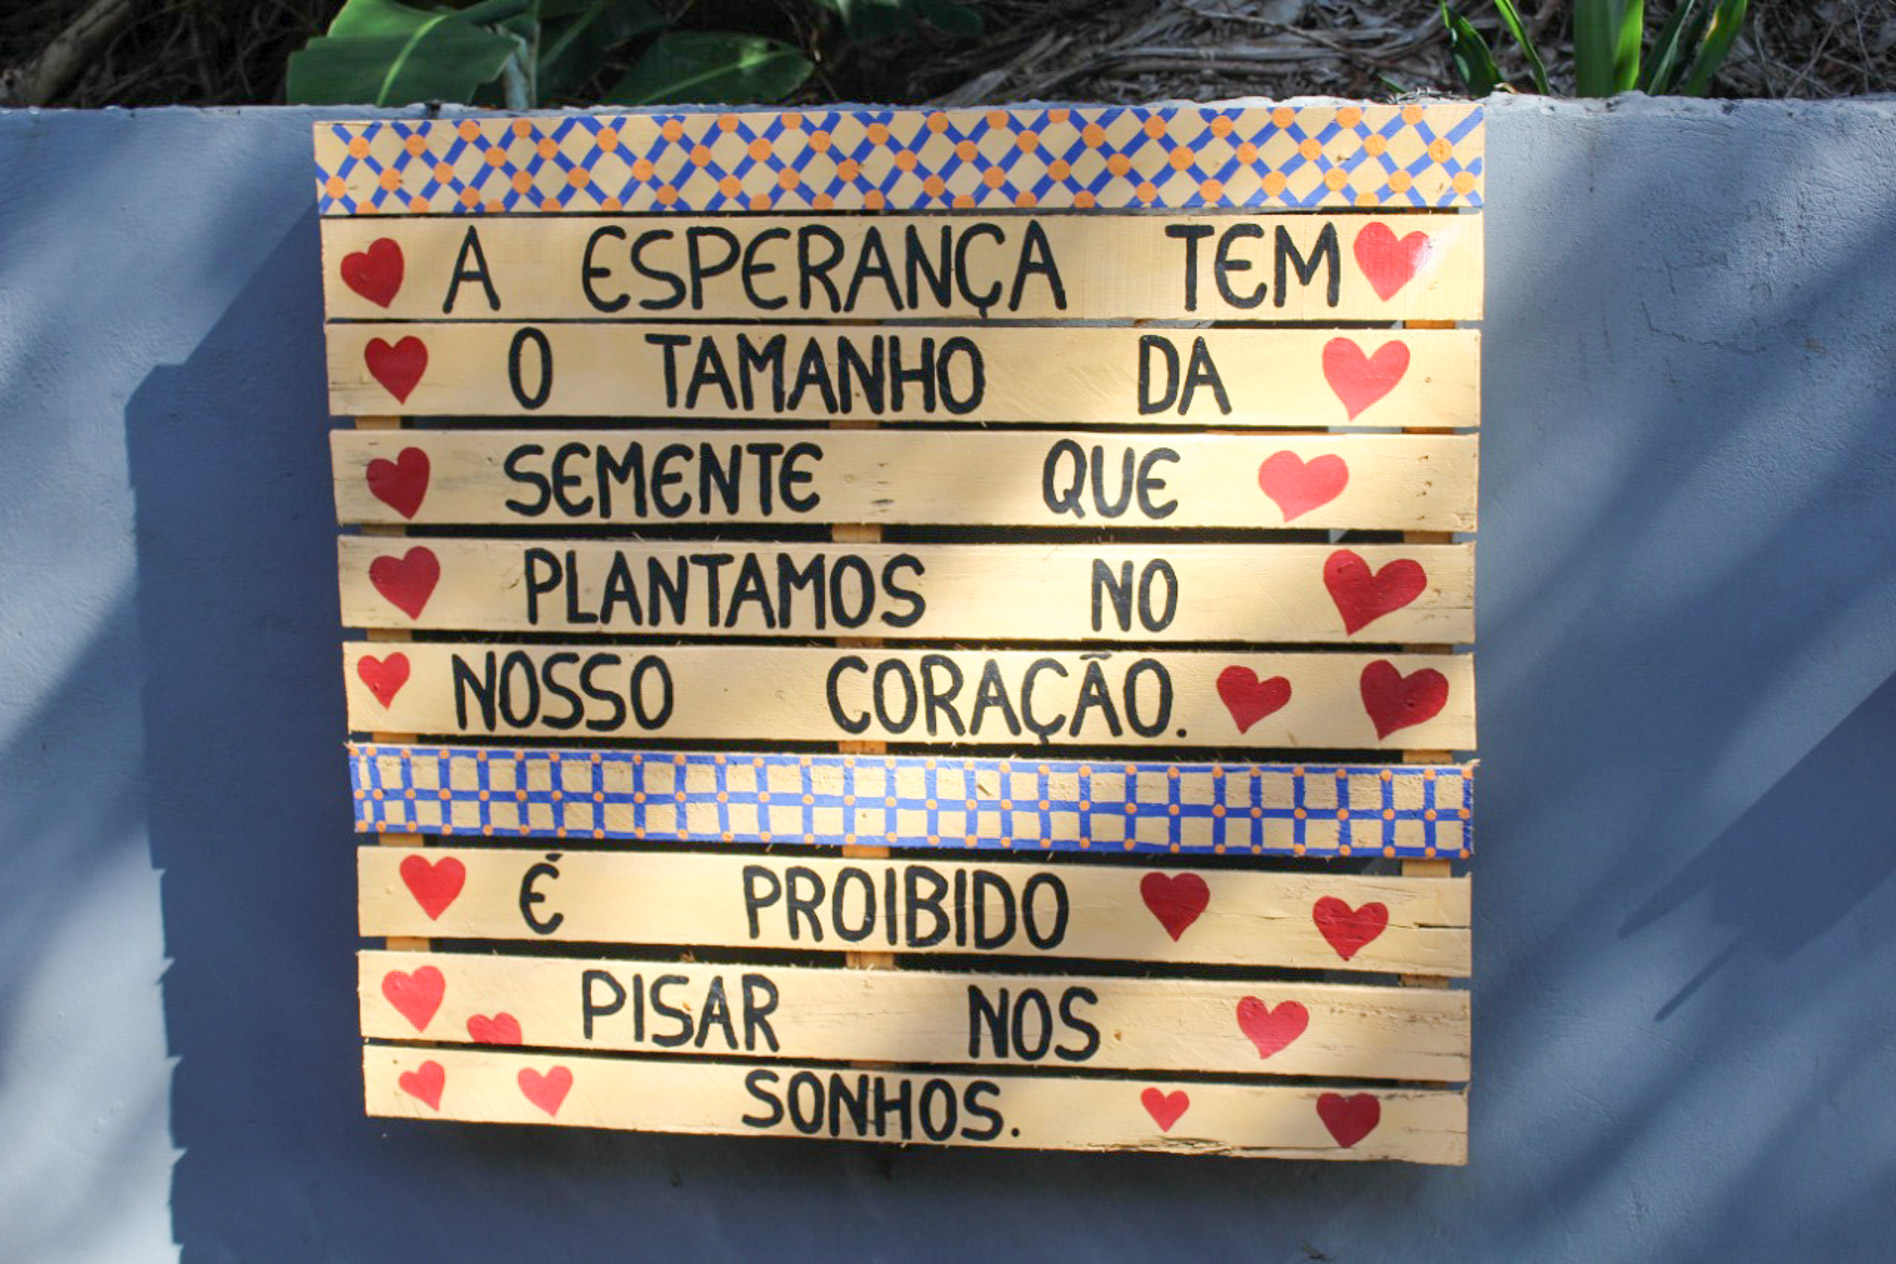 A ESPERANÇA TEM
O TAMANHO DA
SEMENTE QUE
PLANTAMOS NO
NOSSO CORAÇÃO.
É PROIBIDO
PISAR NOS
SONHOS.